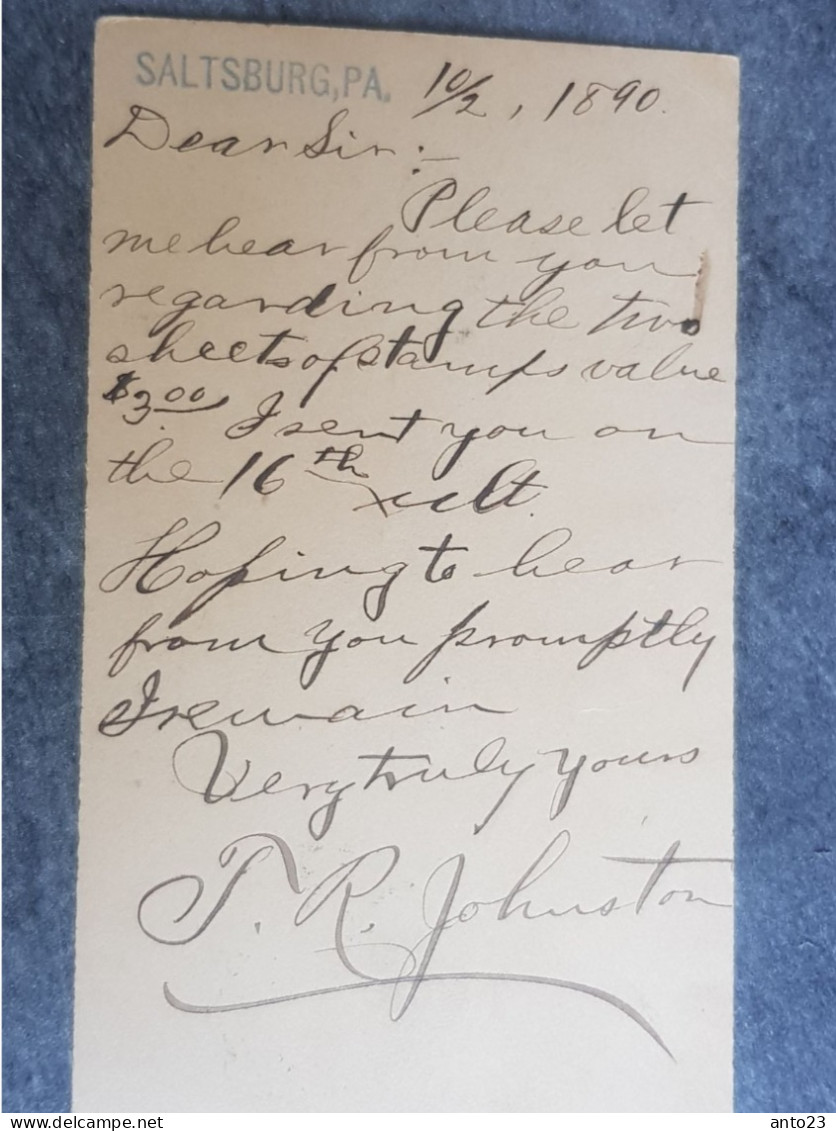 SALTSBURG, PA. 10/2, 1890.
Dear Sir:—
Please let
me hear from you
regarding the two
sheets of stamps value
$3.00 I sent you on
the 16th ult.
Hoping to hear
from you promptly
I remain
Very truly yours
T. R. Johnston
delcampe.net
anto23